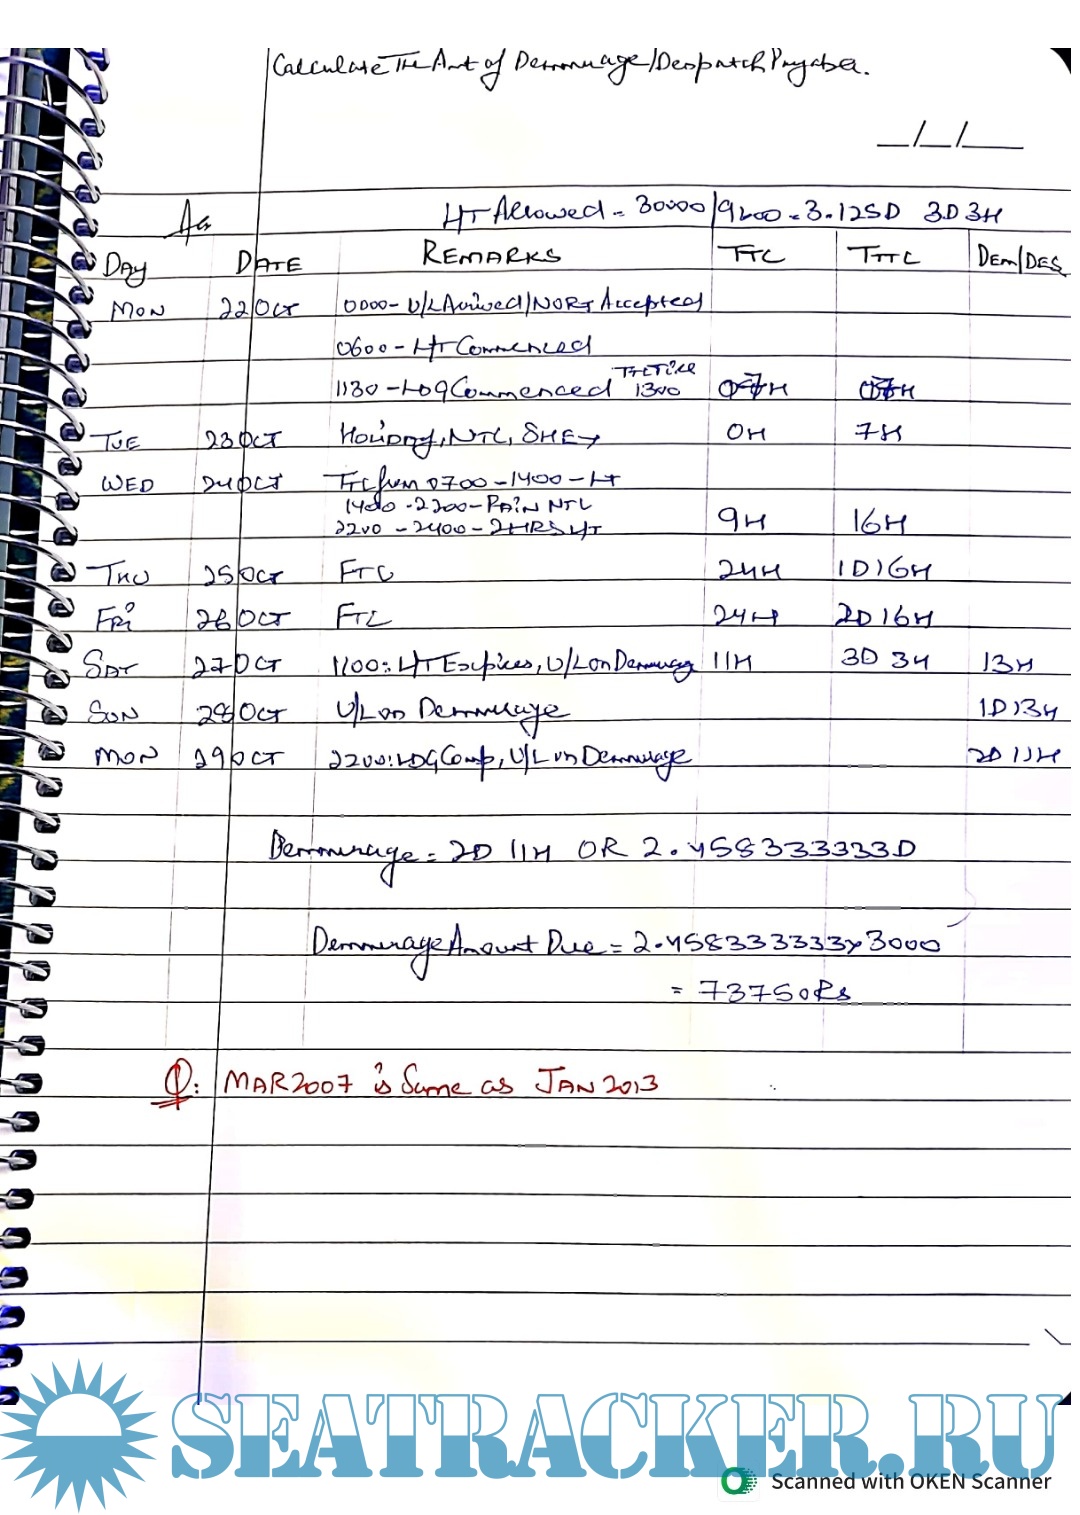 Calculate The Amt of Demmurage/Despatch Payable.
_/_/_
LT Allowed = 30000/9600 = 3.125D 3D 3H
DAY DATE REMARKS TTC TTTC Dem/DES
MON 22 OCT 0000 - V/L Arrived/NORT Accepted
0600 - LT Commenced
1130 - LDG Commenced TTC Till 1300 07H 07H
TUE 23 OCT Holiday, NTC, SHEx 0H 7H
WED 24 OCT TTC from 0700 - 1400 - LT
1400 - 2200 - RAIN NTC
2200 - 2400 - 2HRS LT 9H 16H
THU 25 OCT FTC 24H 1D 16H
FRI 26 OCT FTC 24H 2D 16H
SAT 27 OCT 1100: LT Expires, V/L on Demmurag 11H 3D 3H 13H
SUN 28 OCT V/L on Demmurage 1D 13H
MON 29 OCT 2200: LDG Comp, V/L on Demmurage 2D 11H
Demmurage = 2D 11H OR 2.458333333D
Demmurage Amount Due = 2.458333333 x 3000
= 73750 Rs
Q: MAR 2007 is Same as JAN 2013
SEATRACKER.RU
Scanned with OKEN Scanner